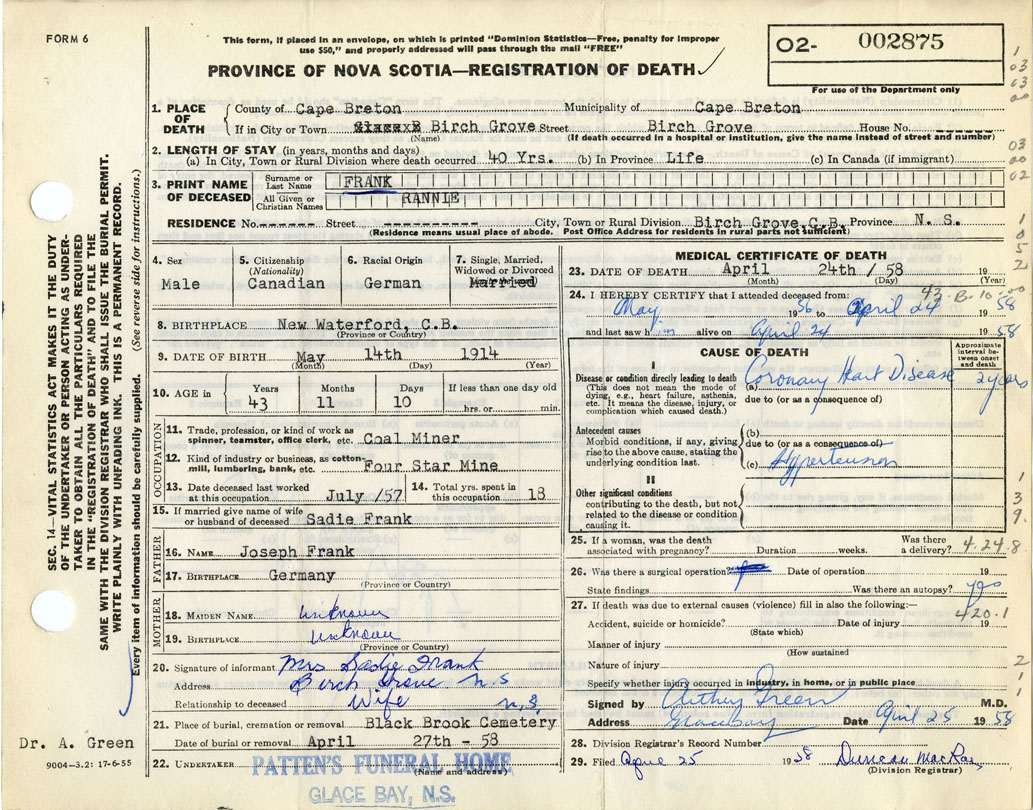 FORM 6
This form, if placed in an envelope, on which is printed "Dominion Statistics—Free, penalty for improper
use $50," and properly addressed will pass through the mail "FREE"
PROVINCE OF NOVA SCOTIA—REGISTRATION OF DEATH
02- 002875
For use of the Department only
1. PLACE OF DEATH
County of Cape Breton Municipality of Cape Breton
If in City or Town Birch Grove Street Birch Grove House No.
(Name) (If death occurred in a hospital or institution, give the name instead of street and number)
2. LENGTH OF STAY (in years, months and days)
(a) In City, Town or Rural Division where death occurred 40 Yrs. (b) In Province Life (c) In Canada (if immigrant)
3. PRINT NAME OF DECEASED
Surname or Last Name FRANK
All Given or Christian Names RANNIE
RESIDENCE No. ------ Street ---------- City, Town or Rural Division Birch Grove,C.B. Province N. S.
(Residence means usual place of abode. Post Office Address for residents in rural parts not sufficient)
4. Sex
Male
5. Citizenship
(Nationality)
Canadian
6. Racial Origin
German
7. Single, Married,
Widowed or Divorced
Married
8. BIRTHPLACE New Waterford, C.B.
(Province or Country)
9. DATE OF BIRTH May 14th 1914
(Month) (Day) (Year)
10. AGE in
Years 43
Months 11
Days 10
If less than one day old
hrs. or min.
OCCUPATION
11. Trade, profession, or kind of work as
spinner, teamster, office clerk, etc. Coal Miner
12. Kind of industry or business, as cotton-
mill, lumbering, bank, etc. Four Star Mine
13. Date deceased last worked
at this occupation July /57
14. Total yrs. spent in
this occupation 18
15. If married give name of wife
or husband of deceased Sadie Frank
FATHER
16. NAME Joseph Frank
17. BIRTHPLACE Germany
(Province or Country)
MOTHER
18. MAIDEN NAME unknown
19. BIRTHPLACE unknown
(Province or Country)
20. Signature of informant Mrs Sadie Frank
Address Birch Grove N.S
Relationship to deceased Wife n.s.
21. Place of burial, cremation or removal Black Brook Cemetery
Date of burial or removal April 27th - 58
22. UNDERTAKER PATTEN'S FUNERAL HOME
(Name and address)
GLACE BAY, N.S.
MEDICAL CERTIFICATE OF DEATH
23. DATE OF DEATH April 24th / 58 19
(Month) (Day) (Year)
24. I HEREBY CERTIFY that I attended deceased from:
May 1956 to April 24 1958
and last saw him alive on April 24 1958
CAUSE OF DEATH
Approximate
interval be-
tween onset
and death
I
Disease or condition directly leading to death
(This does not mean the mode of
dying, e.g., heart failure, asthenia,
etc. It means the disease, injury, or
complication which caused death.)
(a) Coronary Heart Disease 2 years
due to (or as a consequence of)
Antecedent causes
Morbid conditions, if any, giving
rise to the above cause, stating the
underlying condition last.
(b)
due to (or as a consequence of)
(c) Hypertension
II
Other significant conditions
contributing to the death, but not
related to the disease or condition
causing it.
25. If a woman, was the death
associated with pregnancy? Duration weeks. Was there
a delivery?
4.24.8
26. Was there a surgical operation? Date of operation 19
State findings Was there an autopsy? yes
27. If death was due to external causes (violence) fill in also the following:—
420.1
Accident, suicide or homicide? Date of injury 19
(State which)
Manner of injury
(How sustained
Nature of injury
Specify whether injury occurred in industry, in home, or in public place
Signed by Arthur Green M.D.
Address Glace Bay Date April 25 1958
28. Division Registrar's Record Number
29. Filed April 25 1958 Duncan MacRae
(Division Registrar)
SEC. 14—VITAL STATISTICS ACT MAKES IT THE DUTY
OF THE UNDERTAKER OR PERSON ACTING AS UNDER-
TAKER TO OBTAIN ALL THE PARTICULARS REQUIRED
IN THE "REGISTRATION OF DEATH" AND TO FILE THE
SAME WITH THE DIVISION REGISTRAR WHO SHALL ISSUE THE BURIAL PERMIT.
WRITE PLAINLY WITH UNFADING INK. THIS IS A PERMANENT RECORD.
Every item of information should be carefully supplied. (See reverse side for instructions.)
Dr. A. Green
9004-3.2: 17-6-55